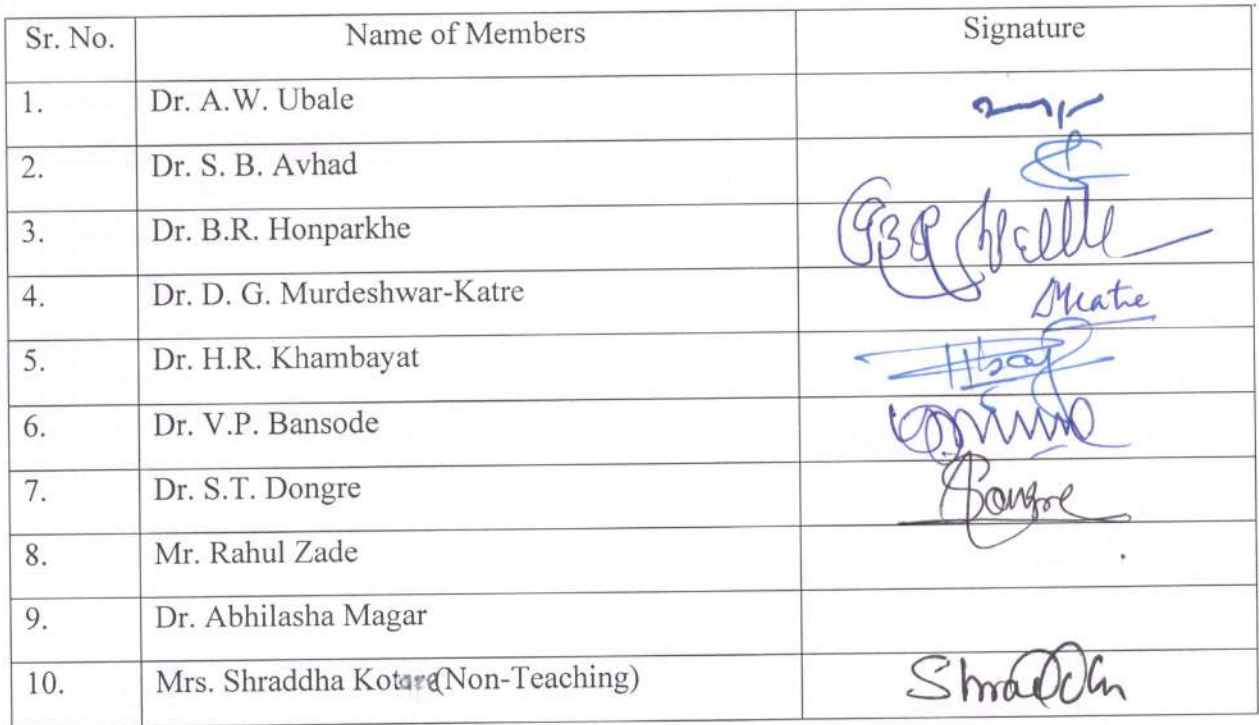 Sr. No. Name of Members Signature
1. Dr. A.W. Ubale
2. Dr. S. B. Avhad
3. Dr. B.R. Honparkhe
4. Dr. D. G. Murdeshwar-Katre
5. Dr. H.R. Khambayat
6. Dr. V.P. Bansode
7. Dr. S.T. Dongre Dongre
8. Mr. Rahul Zade
9. Dr. Abhilasha Magar
10. Mrs. Shraddha Kotare(Non-Teaching) Shraddha